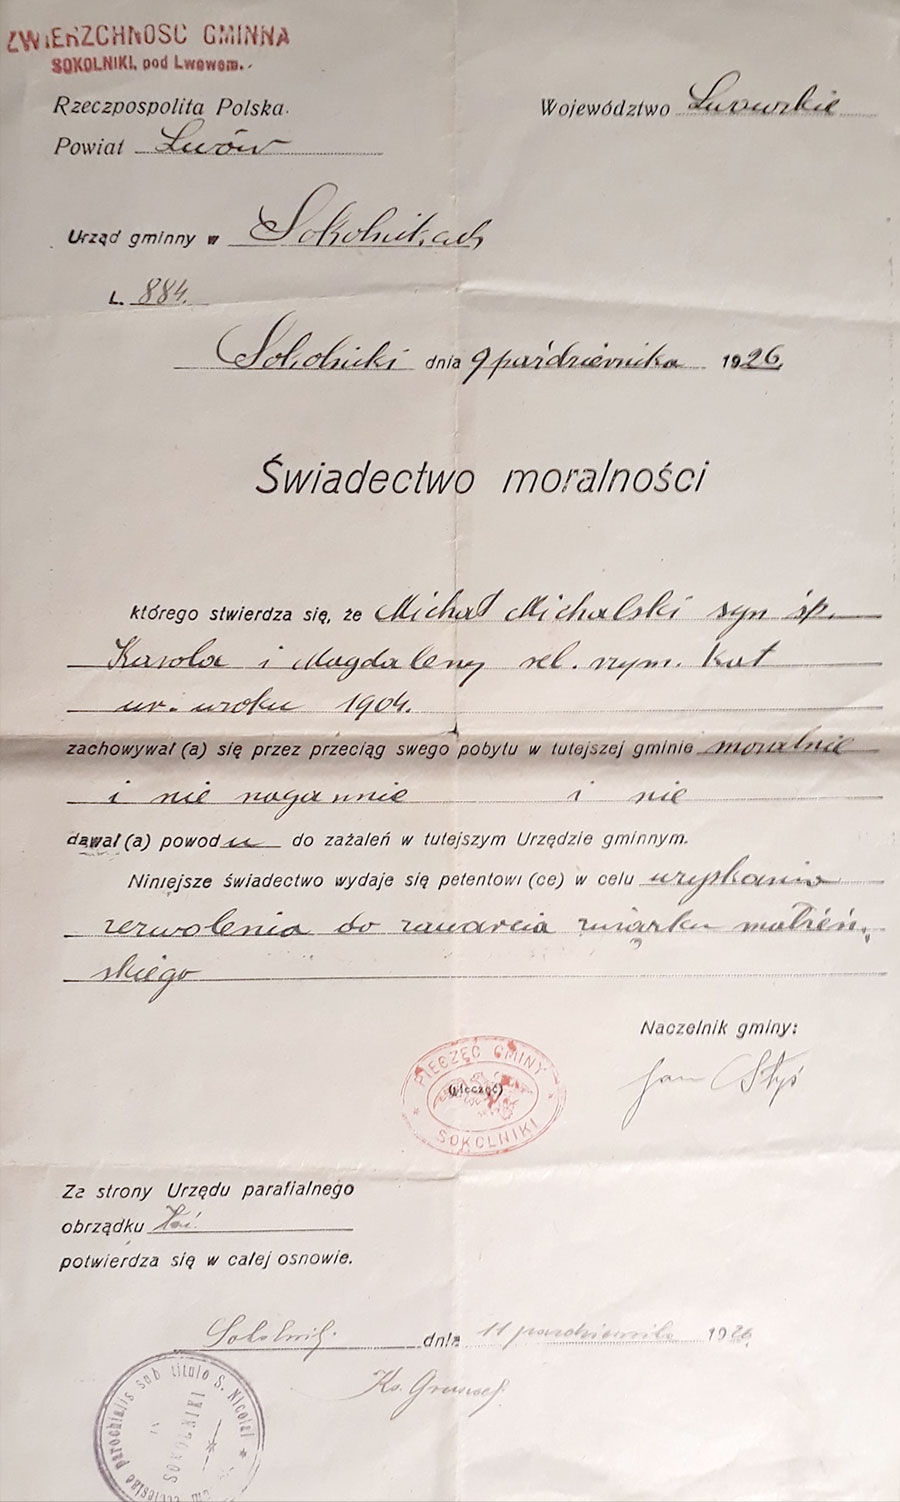 ZWIERZCHNOŚĆ GMINNA
SOKOLNIKI, pod Lwowem.
Rzeczpospolita Polska.
Województwo Lwowskie
Powiat Lwów
Urząd gminny w Sokolnikach
L. 884.
Sokolniki dnia 9 października 1926.
Świadectwo moralności
którego stwierdza się, że Michał Michalski syn śp.
Karola i Magdaleny rel. rzym. kat
ur. w roku 1904.
zachowywał (a) się przez przeciąg swego pobytu w tutejszej gminie moralnie
i nie nagannie i nie
dawał (a) powodu do zażaleń w tutejszym Urzędzie gminnym.
Niniejsze świadectwo wydaje się petentowi (ce) w celu uzyskania
zezwolenia do zawarcia związku małżeń-
skiego
Naczelnik gminy:
Jan Słyś
PIECZĘĆ GMINY
(pieczęć)
SOKOLNIKI
Za strony Urzędu parafialnego
obrządku łać.
potwierdza się w całej osnowie.
Sokolniki dnia 11 października 1926.
Ks.
ecclesiae parochialis sub titulo S. Nicolai
SOKOLNIKI